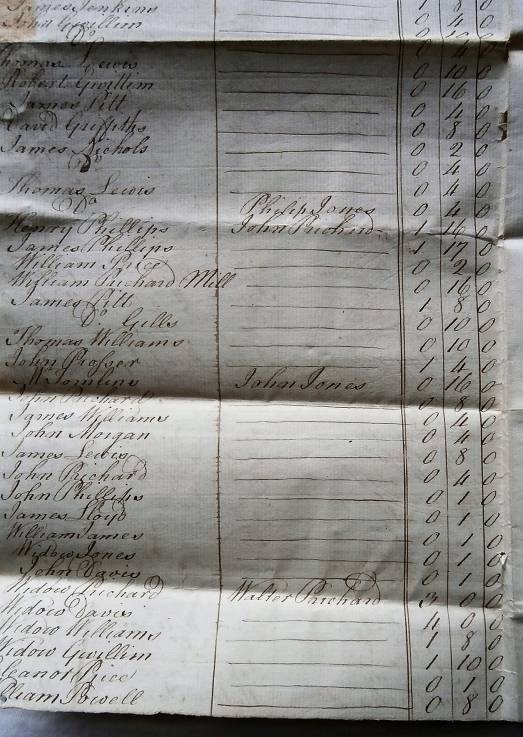 James Jenkins 1 8 0
John Gwillim 0 4 0
Do 0 4 0
Thomas Lewis 0 10 0
Robert Gwillim 0 16 0
James Pitt 0 4 0
David Griffiths 0 8 0
James Nichols 0 2 0
Do 0 4 0
Thomas Lewis 0 4 0
Do Philip Jones 0 4 0
Henry Phillips John Prichard 1 16 0
James Phillips 1 17 0
William Price 0 2 0
William Prichard Mill 0 16 0
James Pitt 1 8 0
Do Gills 0 10 0
Thomas Williams 0 10 0
John Prosser 1 4 0
Tomlins John Jones 0 16 0
John Prichard 0 8 0
James Williams 0 4 0
John Morgan 0 4 0
James Lewis 0 8 0
John Prichard 0 4 0
John Phillips 0 1 0
James Lloyd 0 1 0
William James 0 1 0
Widow Jones 0 1 0
John Davis 0 1 0
Widow Prichard Walter Prichard 3 0 0
Widow Davis 4 0 0
Widow Williams 1 8 0
Widow Gwillim 1 10 0
Eleanor Price 0 1 0
William Powell 0 8 0